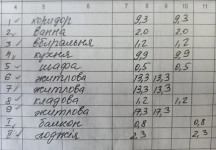 4 5 6 7 8 9 10 11
1 коридор 9,3 9,3
2 ванна 2,0 2,0
3 вбиральня 1,2 1,2
4 кухня 9,9 9,9
5 шафа 0,5 0,5
6 житлова 13,3 13,3
7 житлова 13,3 13,3
8 кладова 1,2 1,2
9 житлова 17,3 17,3
I балкон 0,8 0,8
II лоджія 2,3 2,3